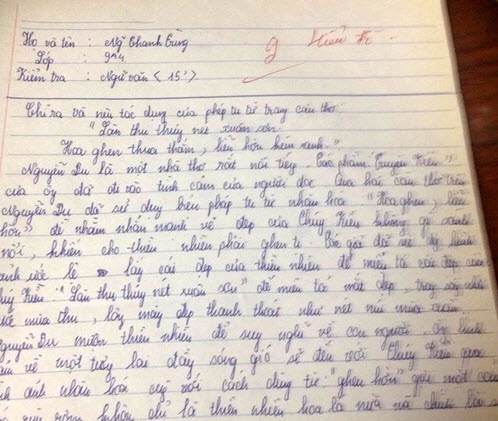 Họ và tên : Ngô Thành Trung
Lớp : 9
9 Hiểu
Kiểm tra : Ngữ văn < 15' >
Chỉ ra và nêu tác dụng của phép tu từ trong câu thơ
"Làn thu thủy nét xuân sơn
Hoa ghen thua thắm, liễu hờn kém xanh."
Nguyễn Du là một nhà thơ rất nổi tiếng. Tác phẩm Truyện Kiều
của ông đã đi vào tình cảm của người đọc. Qua hai câu thơ trên
Nguyễn Du đã sử dụng biện pháp tu từ nhân hóa "Hoa ghen, liễu
hờn" để nhấn mạnh vẻ đẹp của Thúy Kiều không gì sánh
nổi, khiến cho thiên nhiên phải ghen tị. Tác giả đã sử dụng hình
ảnh ước lệ lấy cái đẹp của thiên nhiên để miêu tả vẻ đẹp của
Thúy Kiều. "Làn thu thủy nét xuân sơn" để miêu tả mắt đẹp, trong sáng
mùa thu, lông mày đẹp thanh thoát như nét núi mùa xuân.
Nguyễn Du mượn thiên nhiên để suy nghĩ về con người
về một tương lai đầy sóng gió sẽ đến với Thúy Kiều qua
ảnh nhân hóa với cách dùng từ "ghen hờn"
không chỉ là thiên nhiên hoa lá nữa mà chính